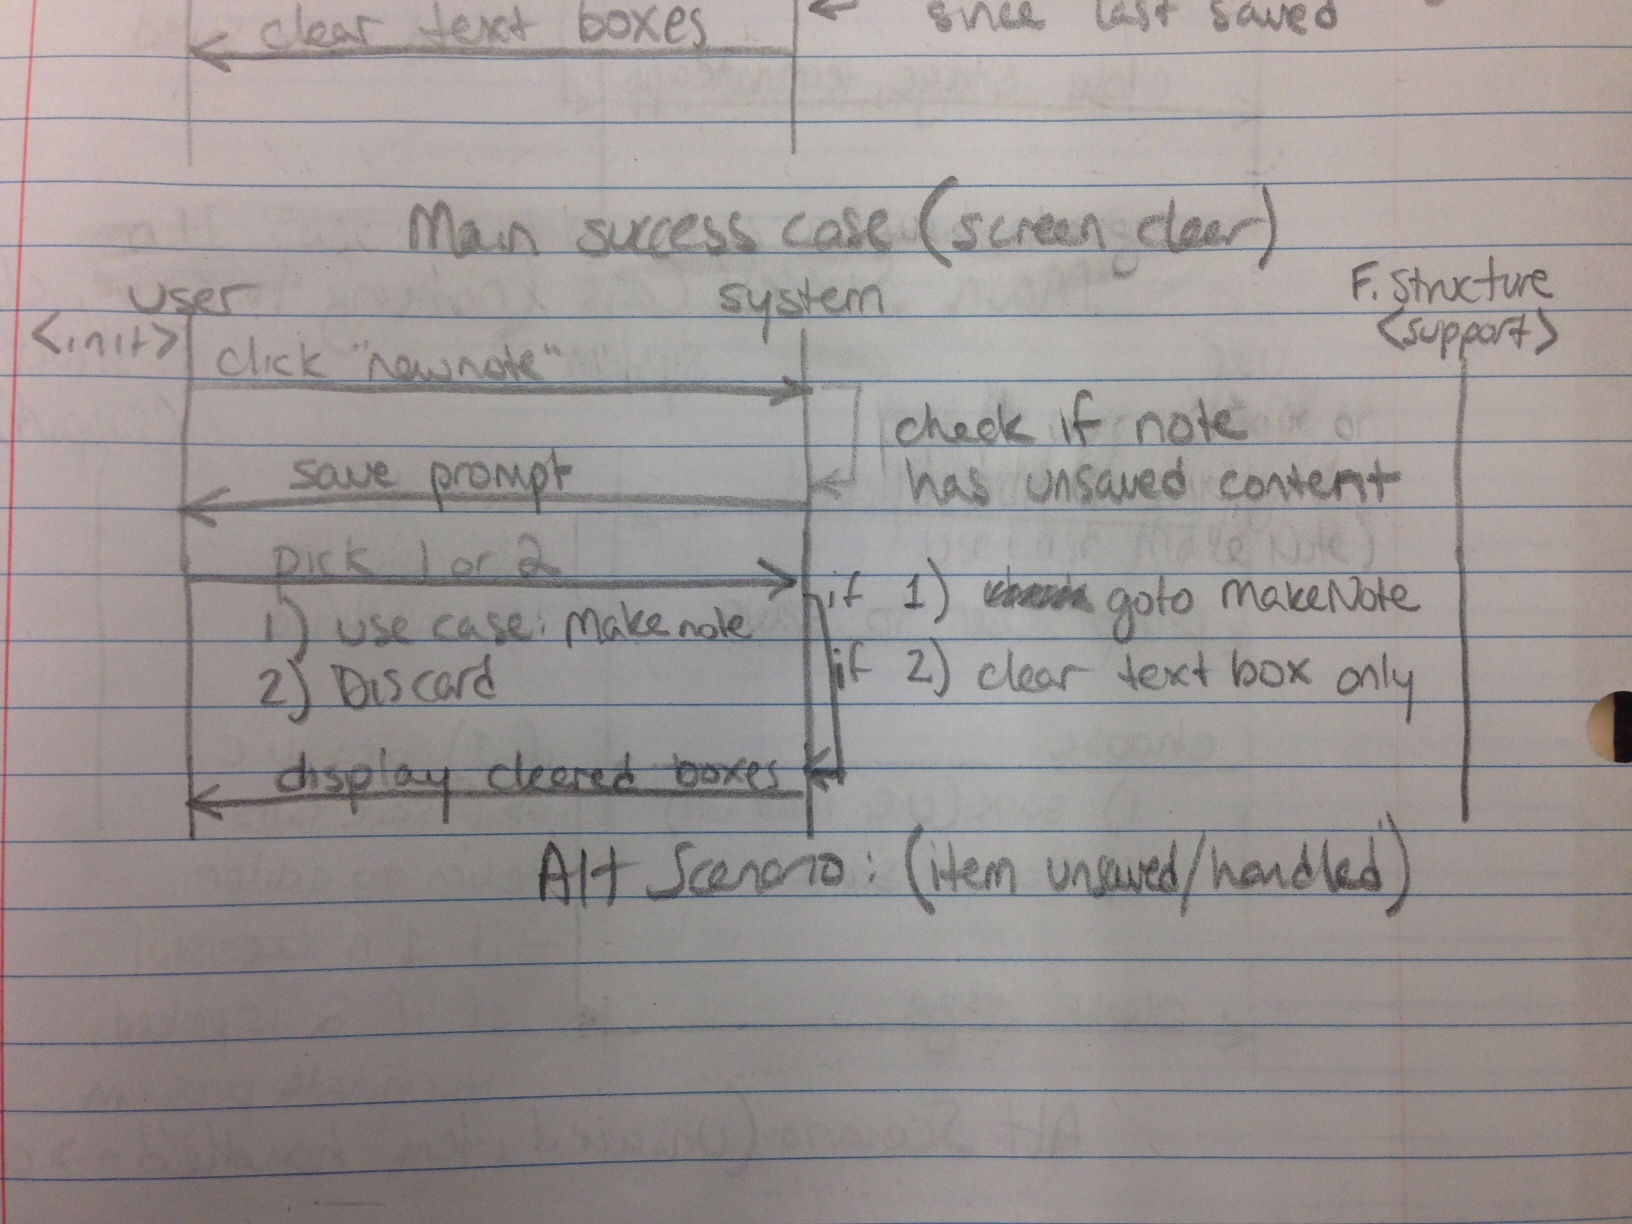 clear text boxes
since last saved
Main success case (screen clear)
user
system
F. Structure
<init>
<support>
click "newnote"
check if note
has unsaved content
save prompt
pick 1 or 2
if 1) goto makeNote
1) use case: Makenote
if 2) clear text box only
2) Discard
display cleared boxes
Alt Scenario: (item unsaved/handled)